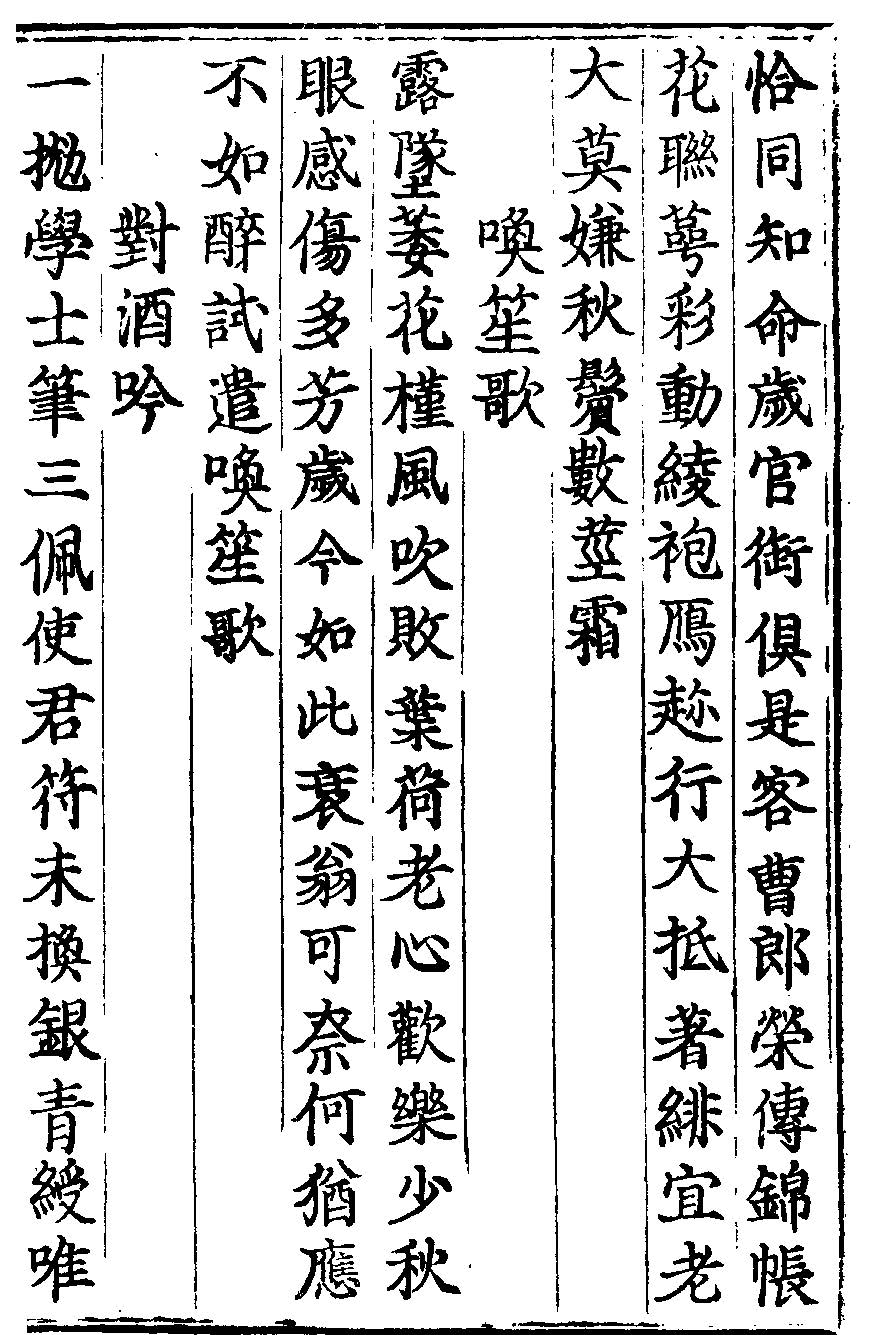 恰同知命歲官銜俱是客曹郎榮傳錦帳
花聯萼彩動綾袍鴈趂行大抵著緋宜老
大莫嫌秋鬢數莖霜
喚笙歌
露墜萎花槿風吹敗葉荷老心歡樂少秋
眼感傷多芳歲今如此衰翁可奈何猶應
不如醉試遣喚笙歌
對酒吟
一拋學士筆三佩使君符未換銀青綬唯